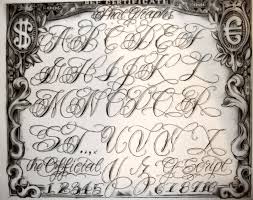 CERTIFICATE
$ €
A B C D E F
G H I J K L
M N O P Q R
S T . , U V W X
the Official Y Z Script
1 2 3 4 5 6 7 8 9 10